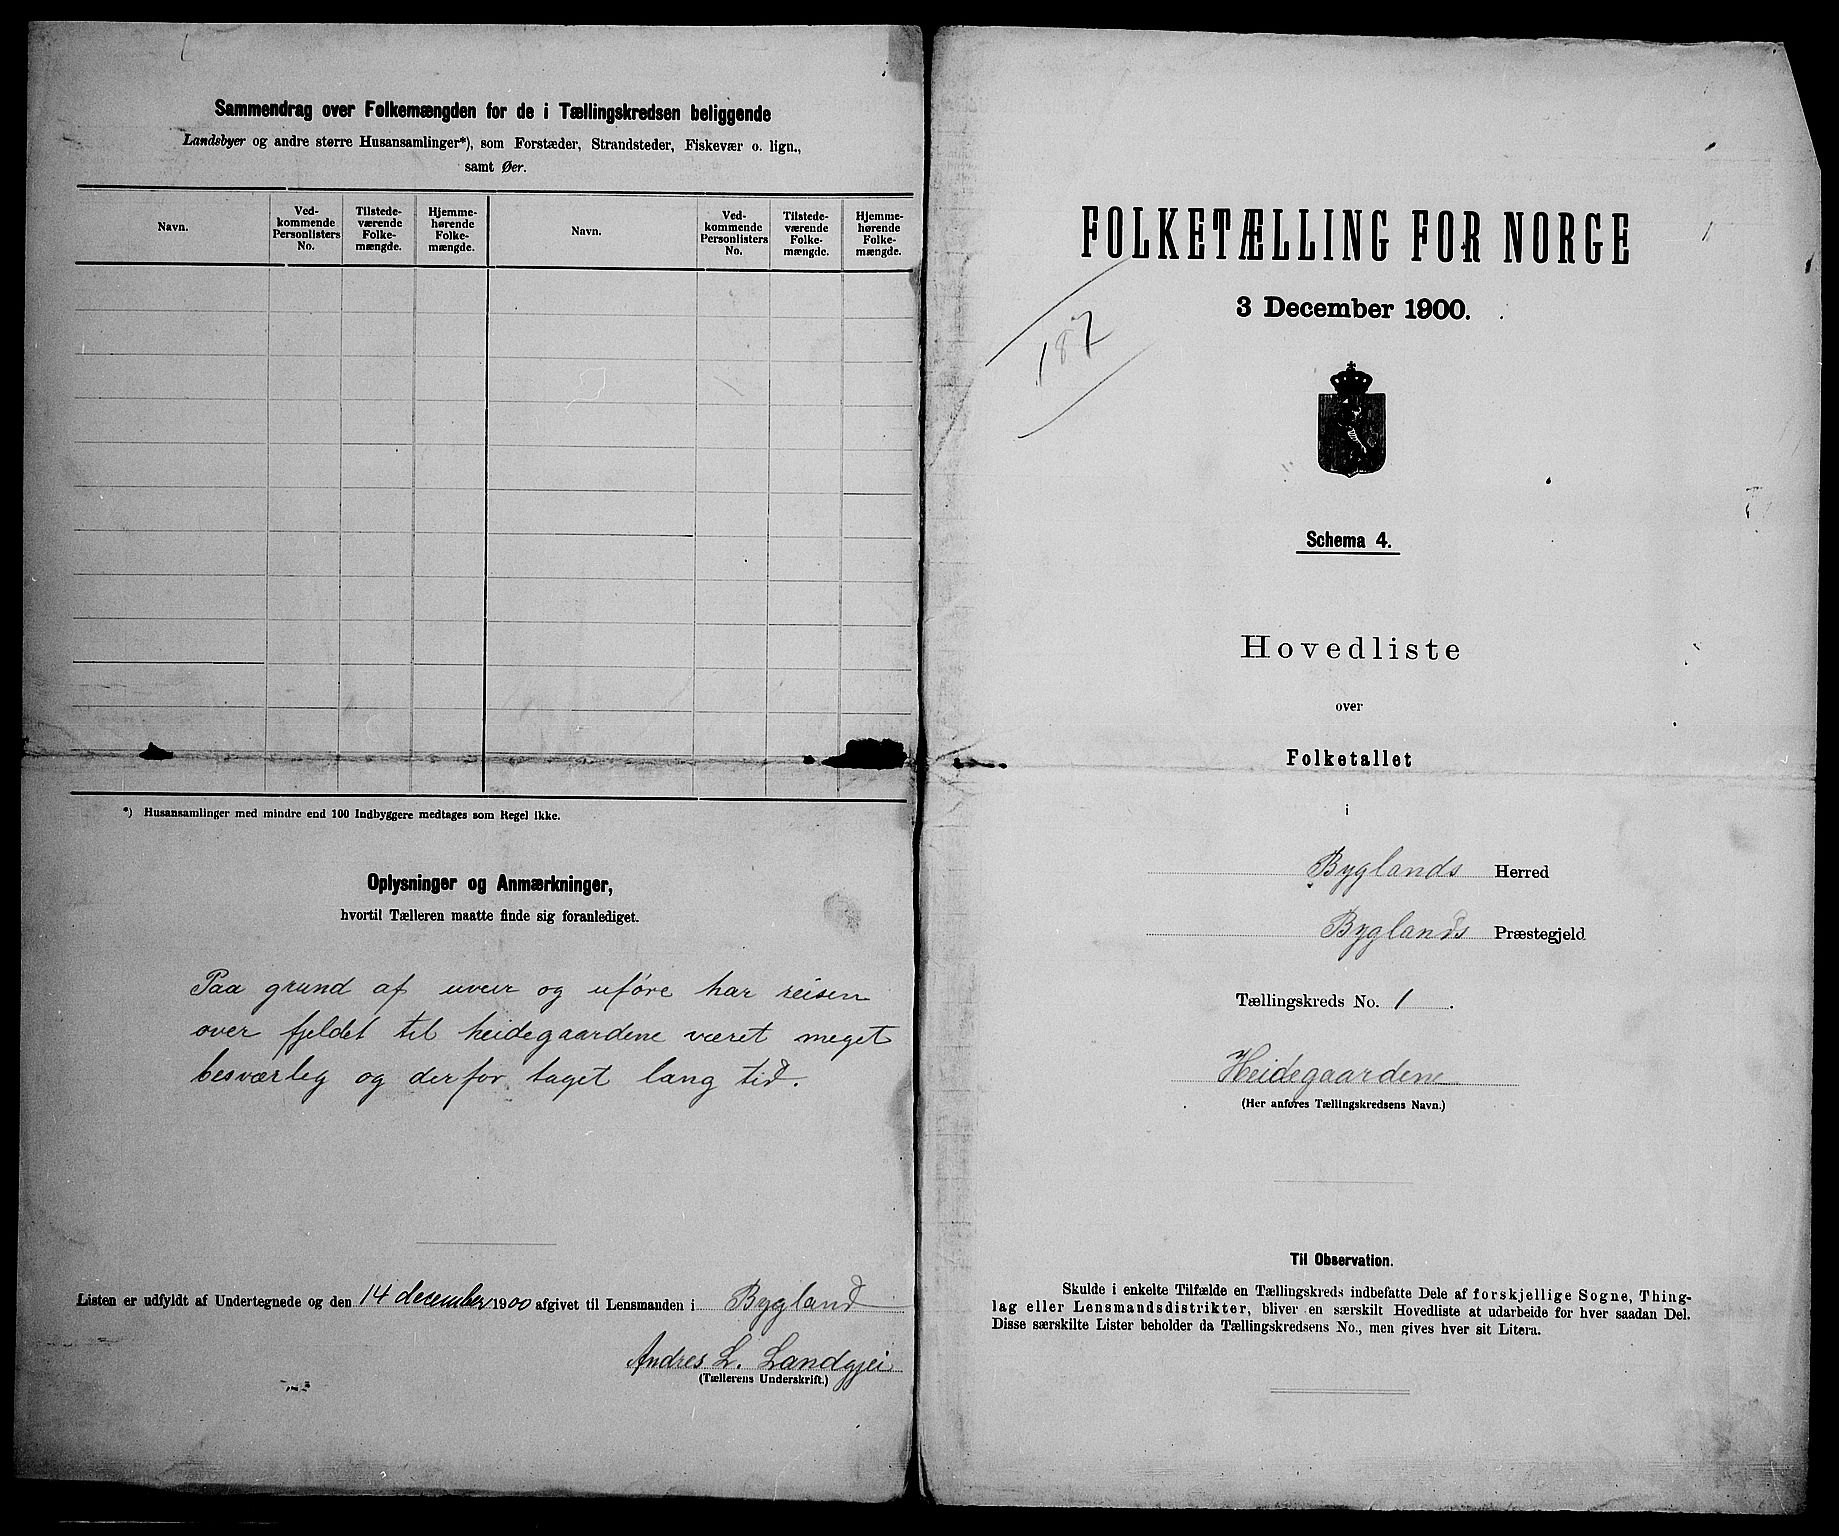 Sammendrag over Folkemængden for de i Tællingskredsen beliggende
Landsbyer og andre større Husansamlinger*), som Forstæder, Strandsteder, Fiskevær o. lign.,
samt Øer.
Navn.
Ved-
kommende
Personlisters
No.
Tilstede-
værende
Folke-
mængde.
Hjemme-
hørende
Folke-
mængde.
Navn.
Ved-
kommende
Personlisters
No.
Tilstede-
værende
Folke-
mængde.
Hjemme-
hørende
Folke-
mængde.
*) Husansamlinger med mindre end 100 Indbyggere medtages som Regel ikke.
Oplysninger og Anmærkninger,
hvortil Tælleren maatte finde sig foranlediget.
Paa grund af uveir og uføre har reisen
over fjeldet til heidegaardene været meget
besværleg og derfor taget lang tid.
Listen er udfyldt af Undertegnede og den 14 december 1900 afgivet til Lensmanden i Bygland
Andres L. Landgjei
(Tællerens Underskrift.)
FOLKETÆLLING FOR NORGE
3 December 1900.
187
Schema 4.
Hovedliste
over
Folketallet
i
Byglands Herred
Byglands Præstegjeld
Tællingskreds No. 1.
Heidegaardene
(Her anføres Tællingskredsens Navn.)
Til Observation.
Skulde i enkelte Tilfælde en Tællingskreds indbefatte Dele af forskjellige Sogne, Thing-
lag eller Lensmandsdistrikter, bliver en særskilt Hovedliste at udarbeide for hver saadan Del.
Disse særskilte Lister beholder da Tællingskredsens No., men gives hver sit Litera.